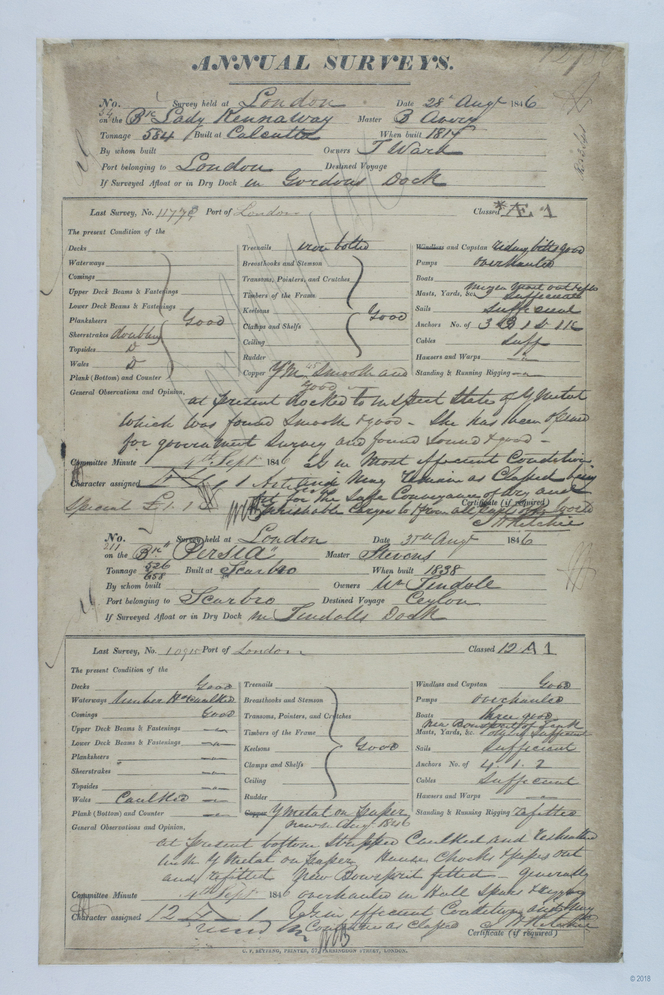 ANNUAL SURVEYS.
No. Survey held at London Date 28th Augt 1846
on the Bk Lady Kennaway Master B Avery
Tonnage 584 Built at Calcutta When built 1817
By whom built Owners T Ward
Port belonging to London Destined Voyage
If Surveyed Afloat or in Dry Dock in Gordons Dock
Last Survey, No. Port of London Classed *Æ 1
The present Condition of the
Decks
Waterways
Comings
Upper Deck Beams & Fastenings
Lower Deck Beams & Fastenings
Planksheers Good
Sheerstrakes doubling
Topsides Do
Wales Do
Plank (Bottom) and Counter
Treenails iron bolted
Breasthooks and Stemson
Transoms, Pointers, and Crutches
Timbers of the Frame
Keelsons Good
Clamps and Shelfs
Ceiling
Rudder
Copper Y M smooth and good
Windlass and Capstan riding bitts good
Pumps overhauled
Boats
Masts, Yards, &c. Sufficient
Sails Sufficient
Anchors No. of
Cables Suff
Hawsers and Warps
Standing & Running Rigging
General Observations and Opinion, at present docked to inspect State of Y Metal
which was found Smooth & good - She has been opened
for government Survey and found Sound & good -
Committee Minute 4th Sept 1846 is in Most efficient Condition
Character assigned and May remain as Classed being
fit for the Safe Conveyance of Dry and
Special £1.1 Perishable Cargo to & from all parts of the World
Certificate (if required)
J H Ritchie
No. Survey held at London Date 31st Augt 1846
211 on the Bk "Persia" Master Stevens
Tonnage 526 658 Built at Scarbro When built 1838
By whom built Owners Wm Tindall
Port belonging to Scarbro Destined Voyage Ceylon
If Surveyed Afloat or in Dry Dock in Tindalls Dock
Last Survey, No. Port of London Classed 12 A 1
The present Condition of the
Decks Good
Waterways caulked
Comings Good
Upper Deck Beams & Fastenings
Lower Deck Beams & Fastenings
Planksheers
Sheerstrakes
Topsides
Wales Caulked
Plank (Bottom) and Counter
Treenails
Breasthooks and Stemson
Transoms, Pointers, and Crutches
Timbers of the Frame
Keelsons Good
Clamps and Shelfs
Ceiling
Rudder
Copper Y Metal on paper
new Augt 1846
Windlass and Capstan Good
Pumps overhauled
Boats three good
New Bowsprit
Masts, Yards, &c. Sufficient
Sails Sufficient
Anchors No. of 4. 1. 2
Cables Sufficient
Hawsers and Warps
Standing & Running Rigging refitted
General Observations and Opinion,
at present bottom Stripped Caulked and resheathed
with Y Metal on paper Hawse Chocks & pipes out
and refitted New Bowsprit fitted - generally
Committee Minute 4th Sept 1846 overhauled in Hull Spars & rigging
Character assigned 12 A 1 Is in efficient Condition and May
Continue as Classed
Certificate (if required) J H Ritchie
LONDON.
© 2018